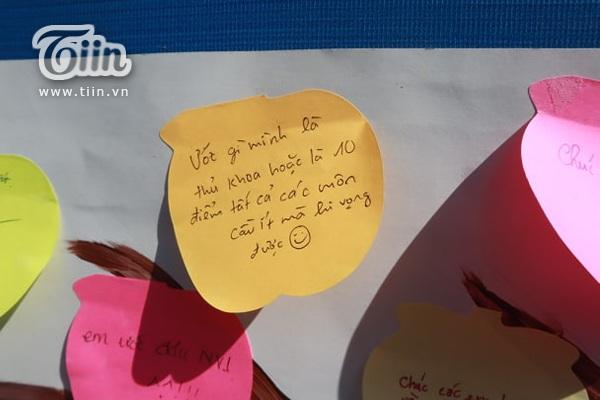 Tiin
www.tiin.vn
Ước gì mình là
thủ khoa hoặc là 10
điểm tất cả các môn
cầu ít mà hi vọng
được ☺
Chúc
em ước đậu NV1
Chúc các em